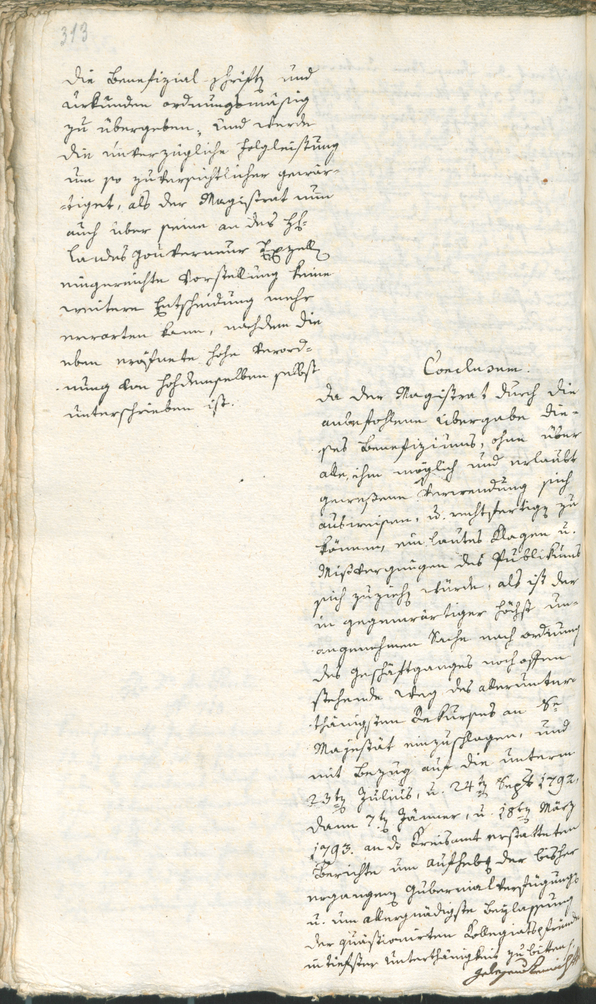 313
die Benefizial-schriften und
Urkunden ordnungsmäsig
zu übergeben, und werde
die unverzügliche Folgleistung
um so zuversichtlicher gewär-
-tiget, als der Magistrat nun
auch über seine an des H
Landes Gouverneur Exzell
eingereichte Vorstellung keine
weitere Entscheidung mehr
erwarten kann, nachdem die
eben eröfnete hohe Verord-
-nung von hochdemselben selbst
unterschrieben ist.
Conclusum:
Da der Magistrat durch die
anbefohlene Übergabe die-
ses Benefiziums, ohne über
alle, ihm möglich und erlaubt
gewesene Verwendung sich
ausweisen, u. rechtfertigen zu
können, ein lautes Klagen u.
Mißvergnügen des Publikums
sich zuziehen würde, als ist der
in gegenwärtiger höchst un-
-angenehmen Sache nach ordnung
des Geschäftganges noch offen
stehende Weg des allerunter-
-thänigsten Rekurses an Se
Majestät einzuschlagen, und
mit Bezug auf die unterm
23ten Julius, u. 24ten Septr 1792,
dann 7ten Jänner, u. 18ten März
1793. an das Kreisamt erstatteten
Berichte um Aufhebung der bisher
ergangenen Gubernialverfügungen
u. um allergnädigste Beylassung
der quästionirten Kollegiatspfründe
in tiefster Unterthänigkeit zu bitten.